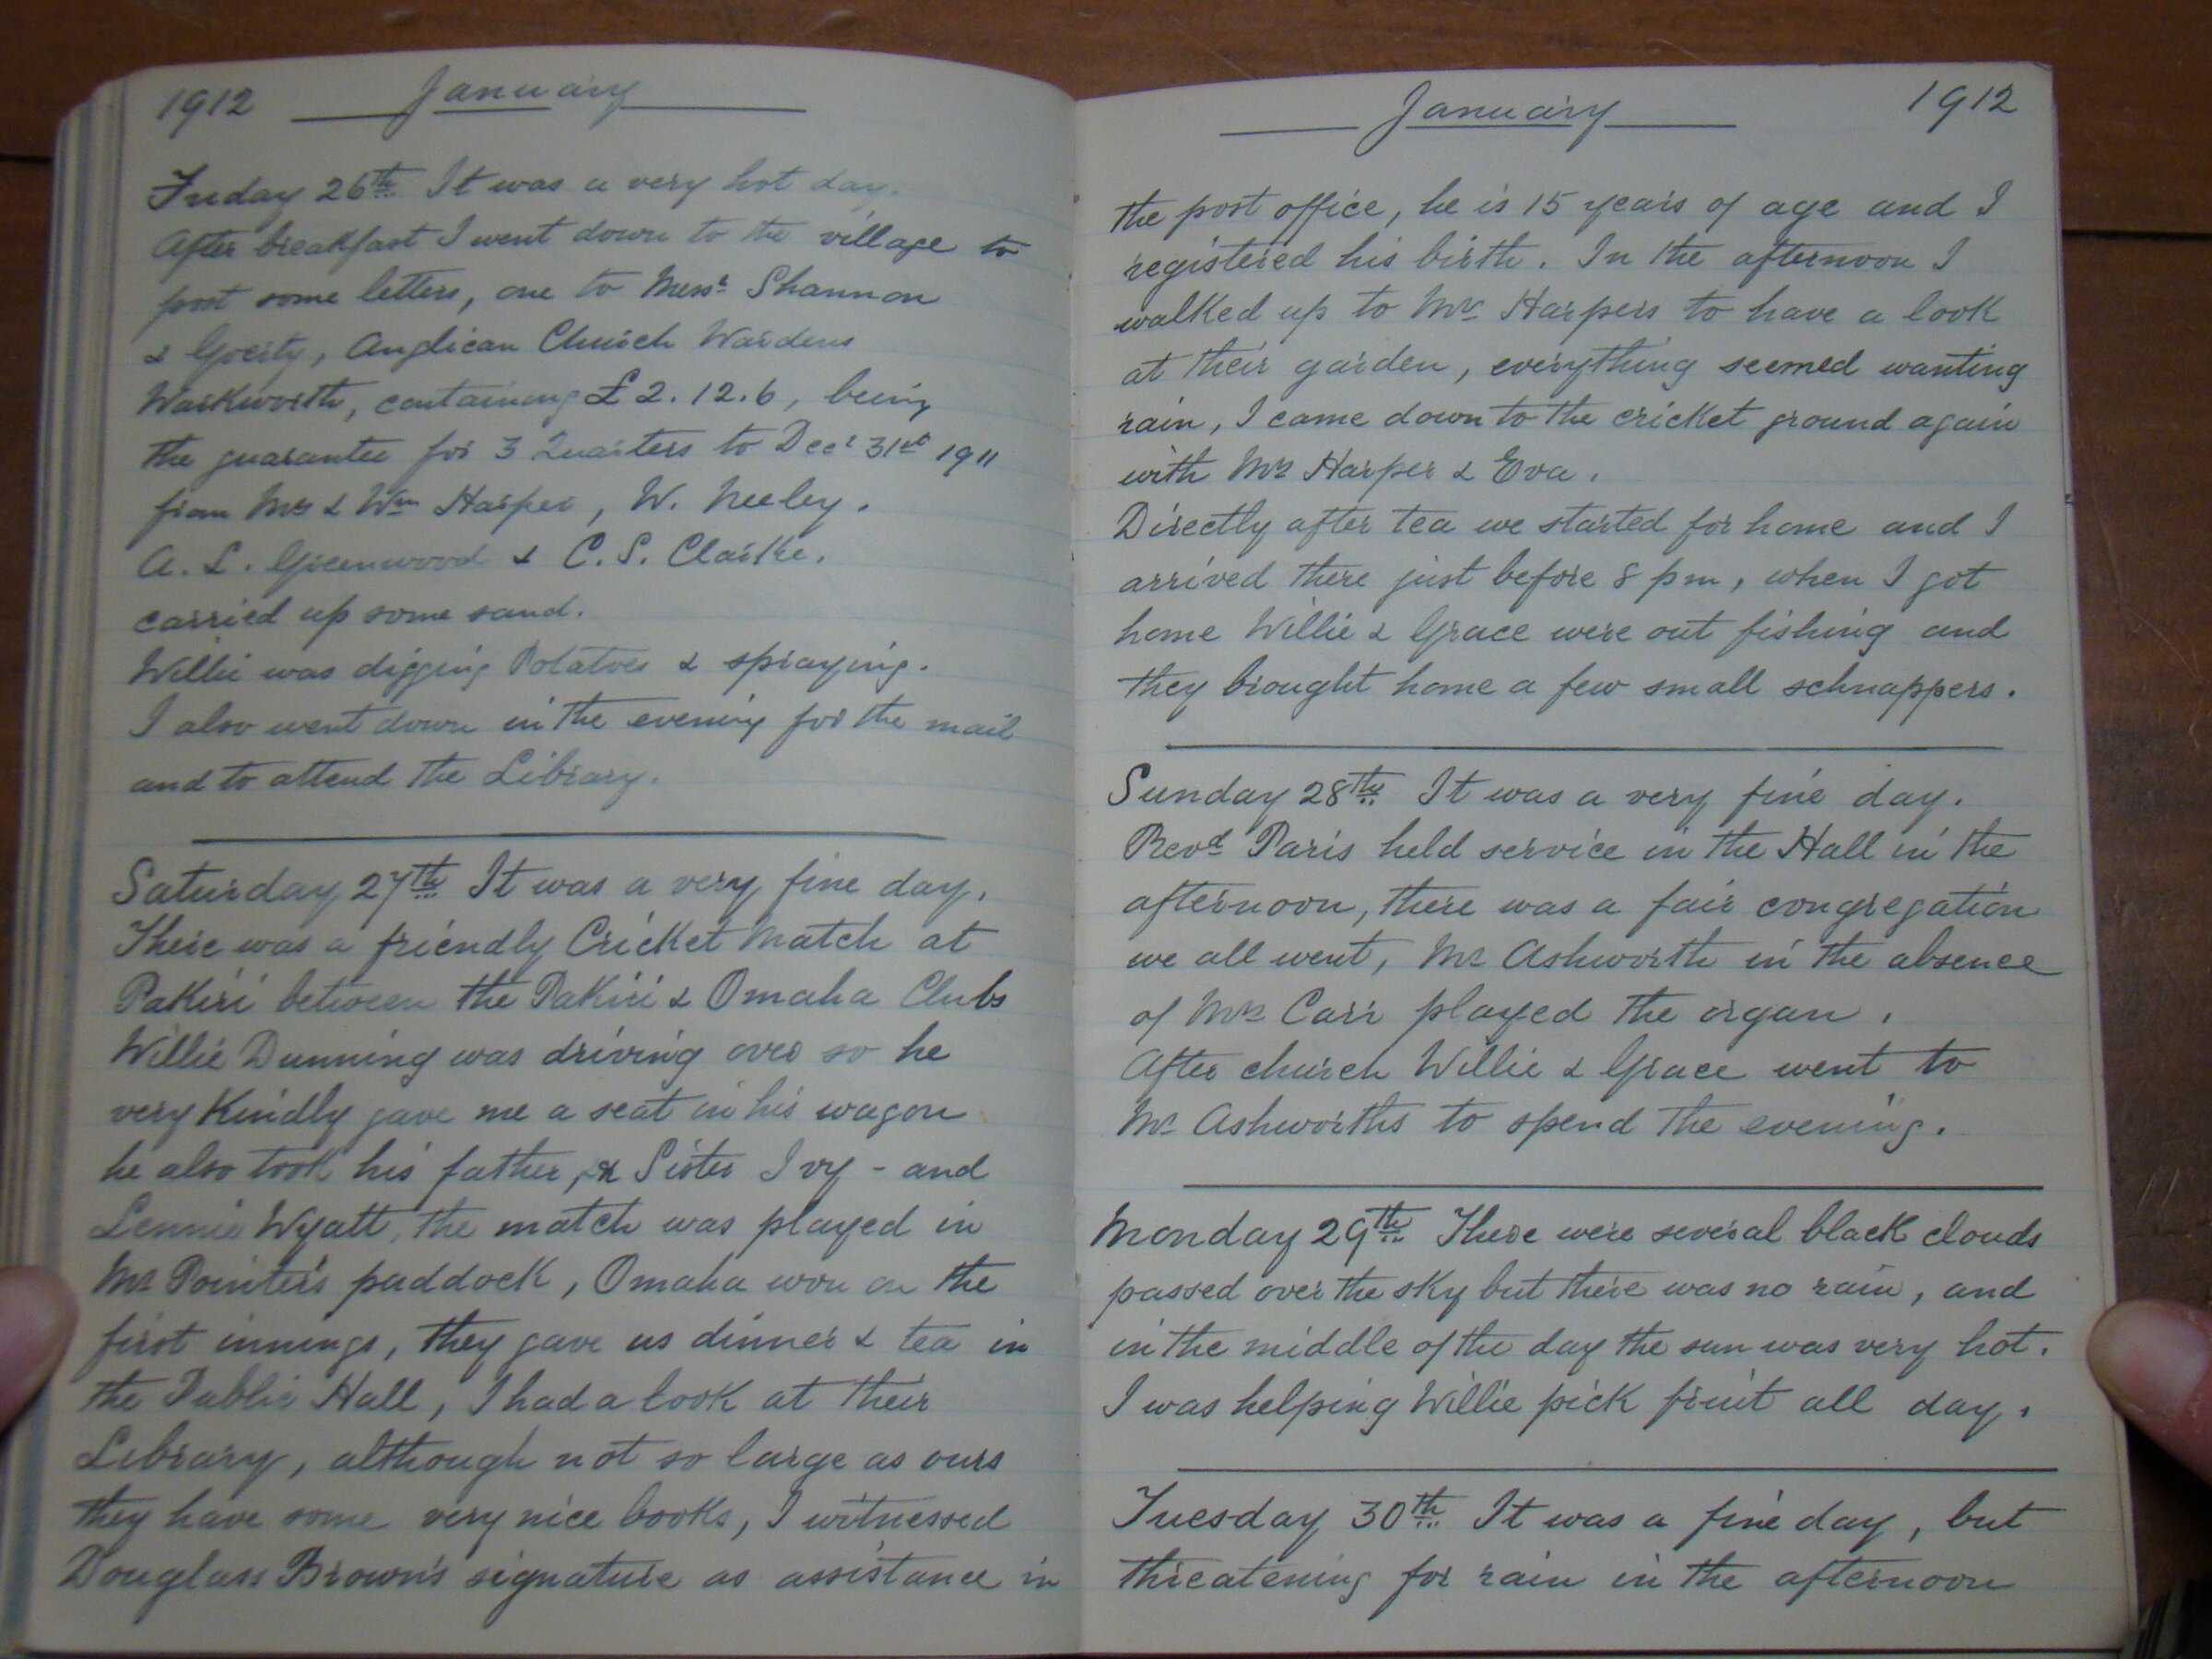 1912 January
Friday 26th It was a very hot day.
After breakfast I went down to the village to
post some letters, one to Messrs Shannon
& Goesty, Anglican Church Wardens
Warkworth, containing £2.12.6, being
the guarantee for 3 Quarters to Decr 31st 1911
from Mrs & Wm Harper, W. Neeley.
A. L. Greenwood & C. S. Clarke.
carried up some sand.
Willie was digging Potatoes & spraying.
I also went down in the evening for the mail
and to attend the Library.
Saturday 27th It was a very fine day.
There was a friendly Cricket Match at
Pakiri between the Pakiri & Omaha Clubs
Willie Dunning was driving over so he
very Kindly gave me a seat in his wagon
he also took his father, & Sister Ivy - and
Lennie Wyatt, the match was played in
Mr Pointer's paddock, Omaha won on the
first innings, they gave us dinner & tea in
the Public Hall, I had a look at their
Library, although not so large as ours
they have some very nice books, I witnessed
Douglass Brown's signature as assistance in
January 1912
the post office, he is 15 years of age and I
registered his birth. In the afternoon I
walked up to Mr Harpers to have a look
at their garden, everything seemed wanting
rain, I came down to the cricket ground again
with Mrs Harper & Eva.
Directly after tea we started for home and I
arrived there just before 8 pm, when I got
home Willie & Grace were out fishing and
they brought home a few small schnappers.
Sunday 28th It was a very fine day.
Revd Paris held service in the Hall in the
afternoon, there was a fair congregation
we all went, Mr Ashworth in the absence
of Mrs Carr played the organ.
After church Willie & Grace went to
Mr Ashworths to spend the evening.
Monday 29th There were several black clouds
passed over the sky but there was no rain, and
in the middle of the day the sun was very hot.
I was helping Willie pick fruit all day.
Tuesday 30th It was a fine day, but
threatening for rain in the afternoon